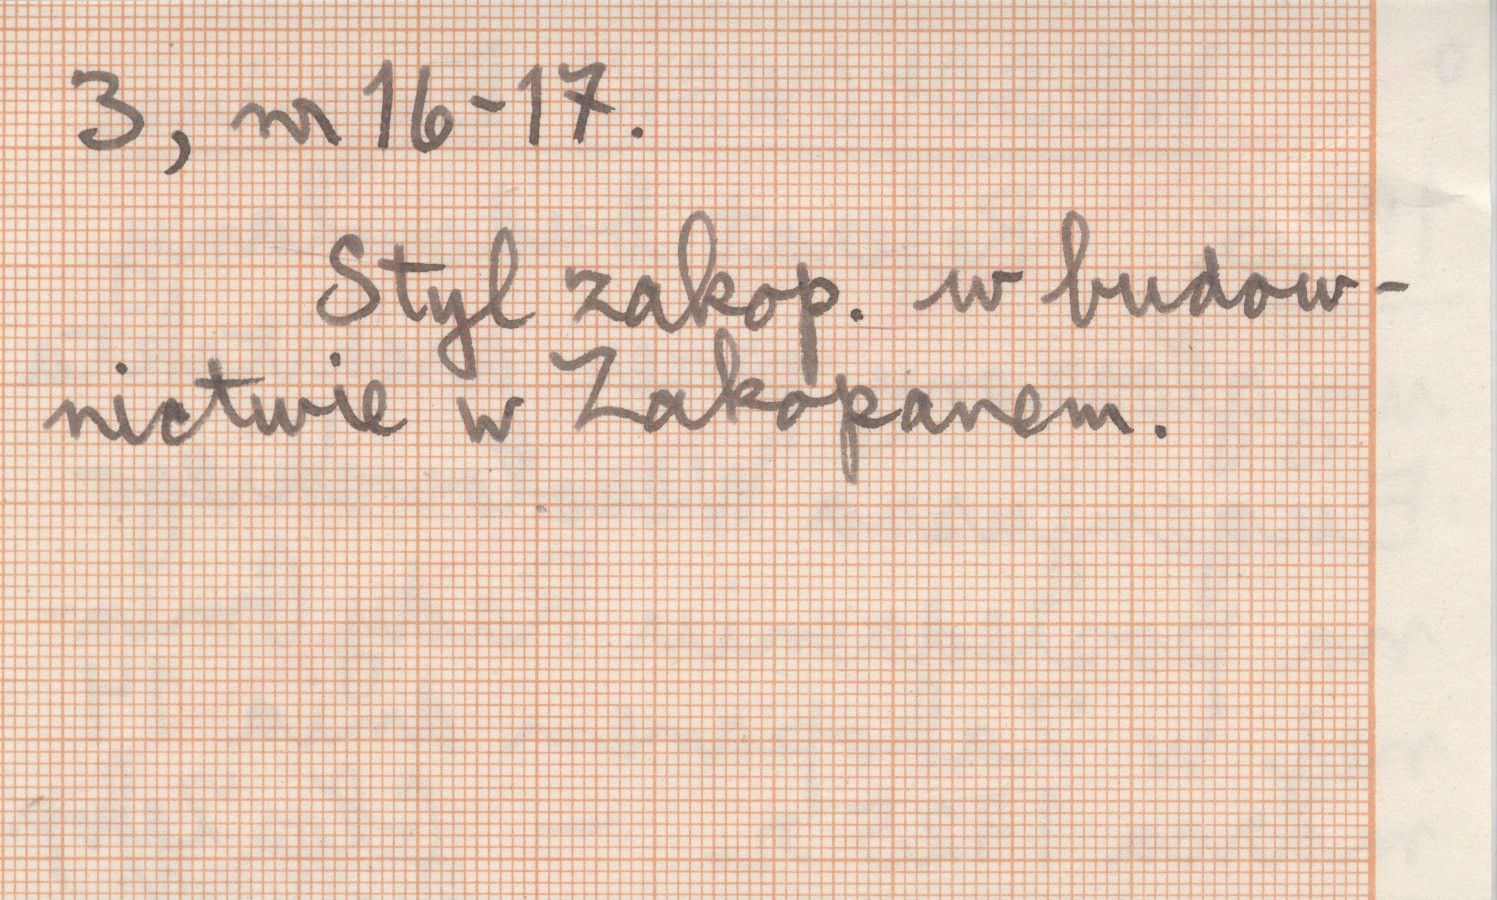 3, nr 16-17.
Styl zakop. w budow-
nictwie w Zakopanem.